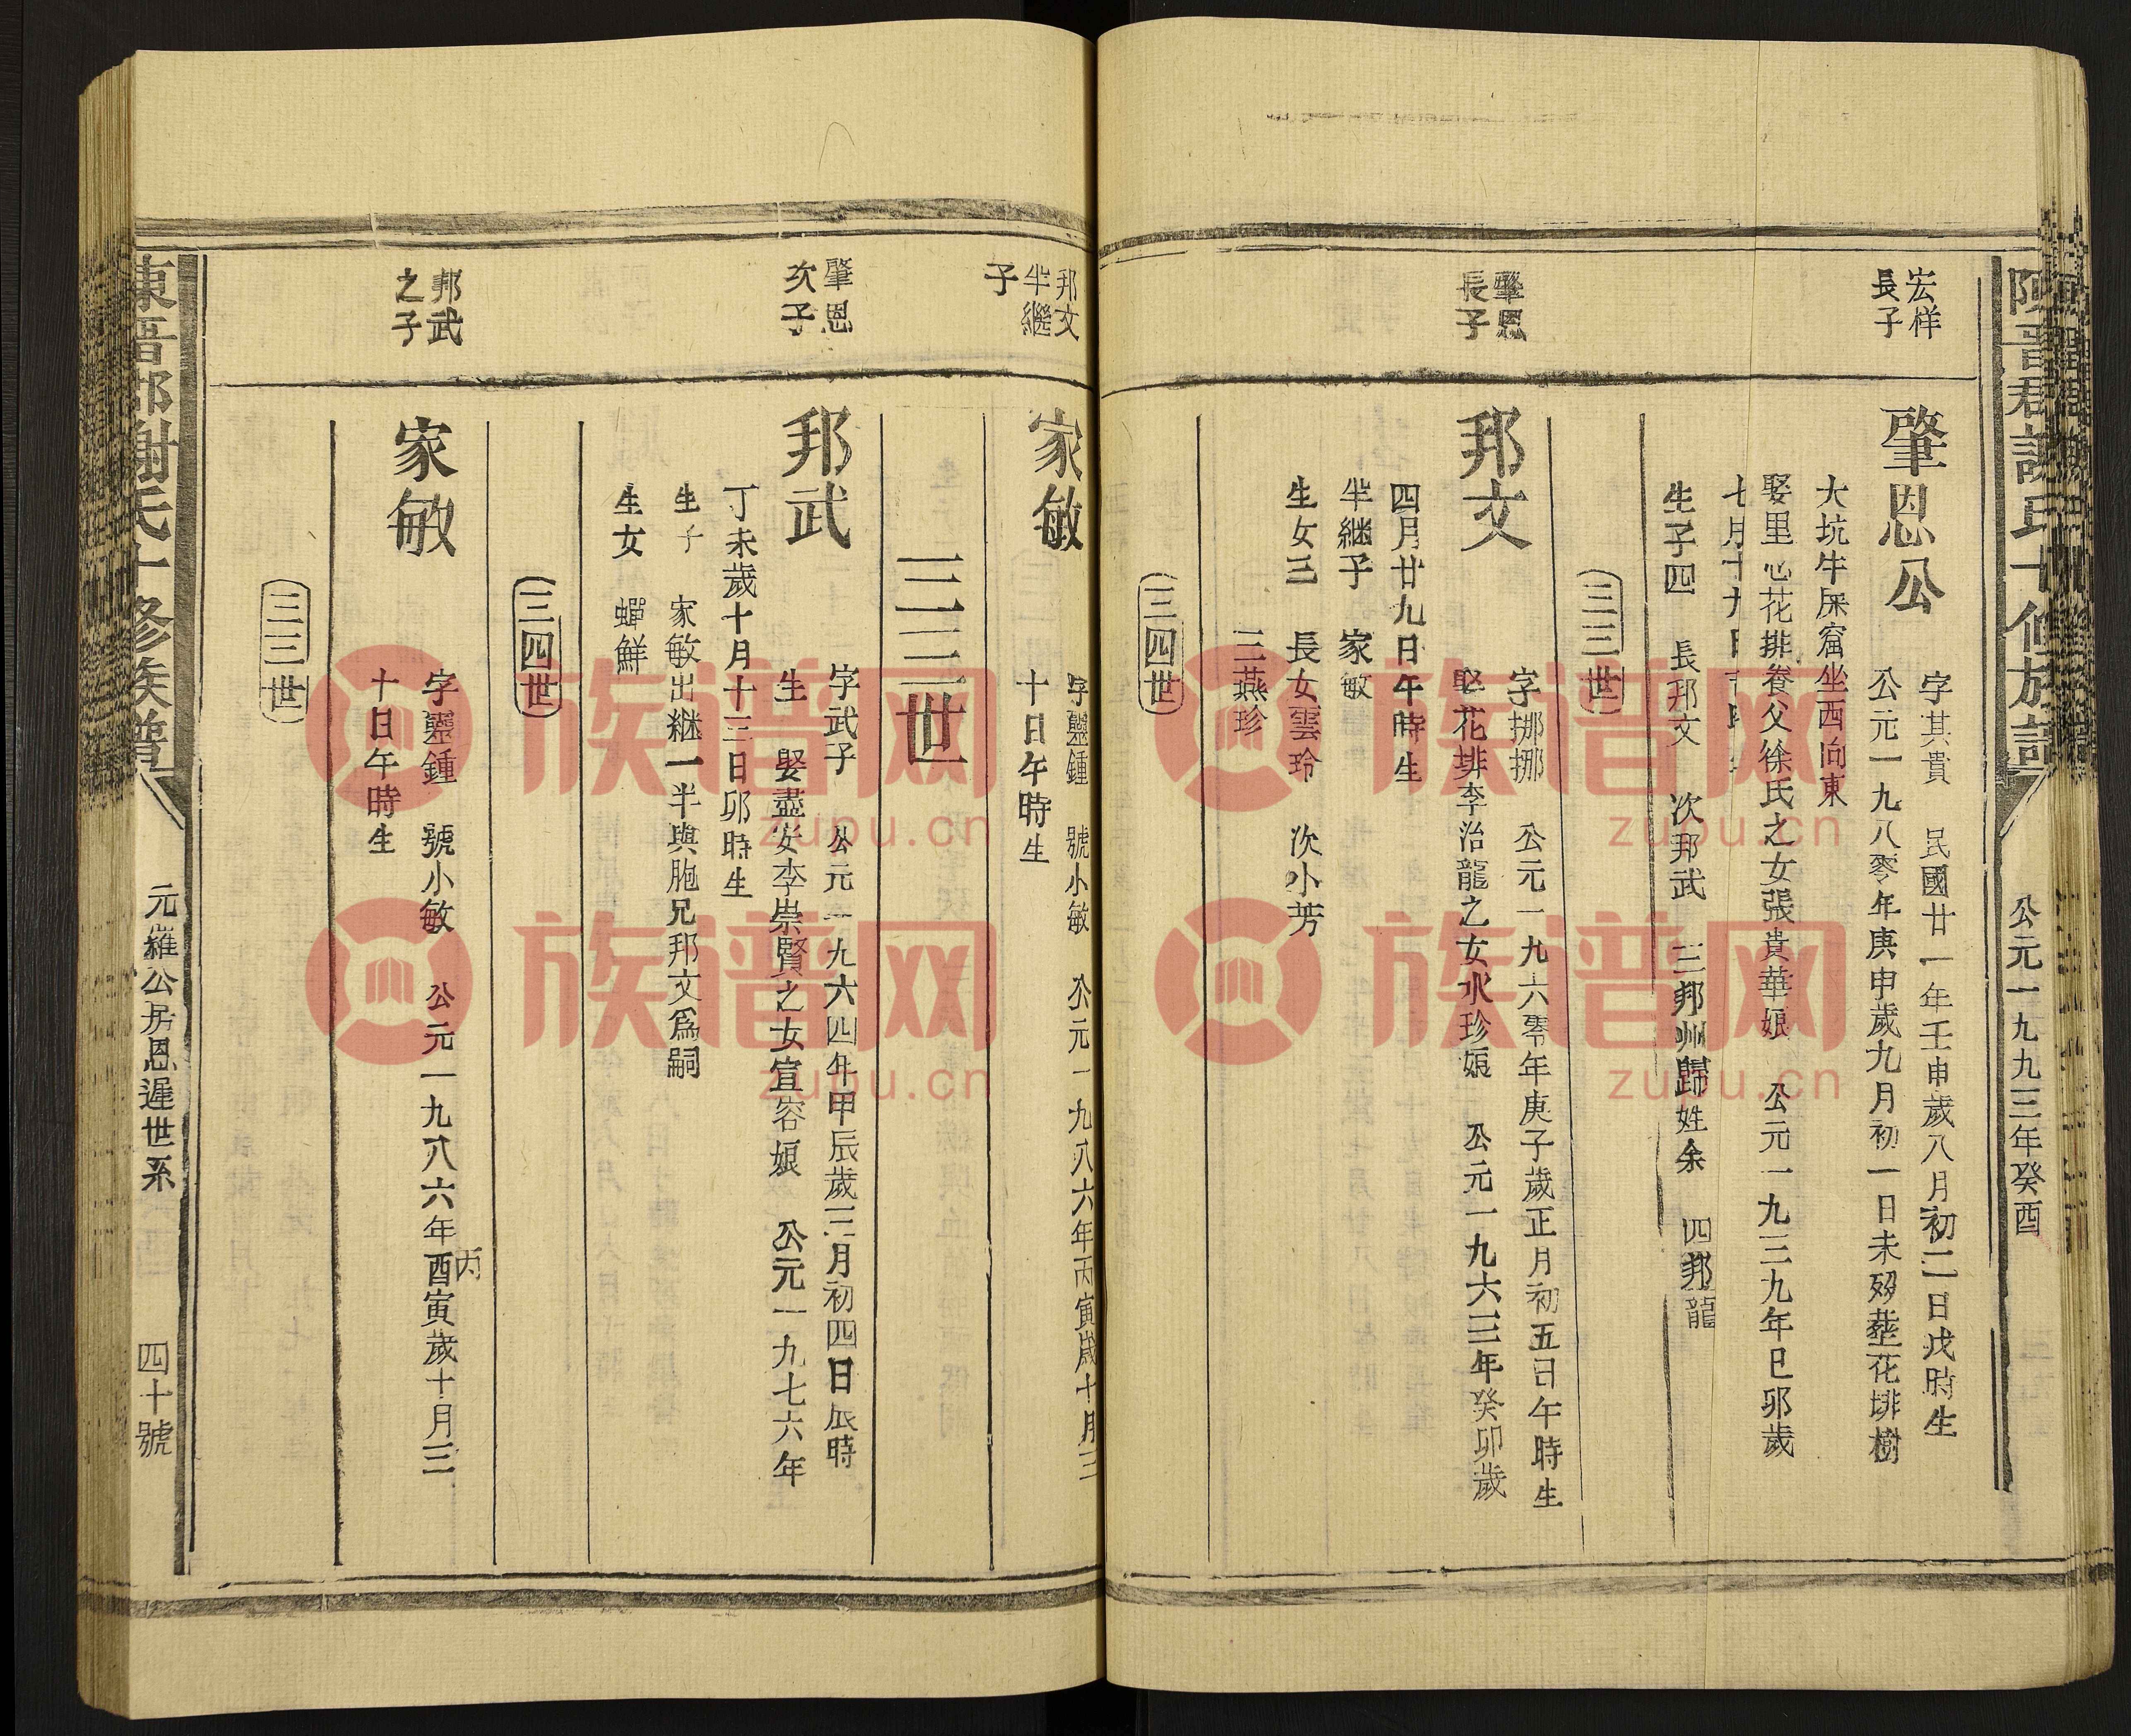 陳晉郡謝氏十修族譜
公元一九九三年癸酉
宏样
長子
肇恩公
字其貴 民國廿一年壬申歲八月初二日戊時生
公元一九八零年庚申歲九月初一日未歿塟花排樹
大坑牛屎窟坐西向東
娶里心花排養父徐氏之女張貴華娘 公元一九三九年巳卯歲
七月十九日
生子四 長邦文 次邦武 三邦州歸姓余 四邦龍
三三世
肇恩
長子
邦文
字挪挪 公元一九六零年庚子歲正月初五日午時生
娶花排李治龍之女水珍娘 公元一九六三年癸卯歲
四月廿九日午時生
半継子 家敏
生女三 長女雲玲 次小芳
三燕珍
三四世
邦文
半繼
子
家敏
字靈鍾 號小敏 公元一九八六年丙寅歲十月三
十日午時生
三三世
肇恩
次子
邦武
字武子 公元一九六四年甲辰歲三月初四日辰時
生 娶盡安李崇賢之女宣容娘 公元一九七六年
丁未歲十月十三日卯時生
生子 家敏出継一半與胞兄邦文為嗣
生女 蟬鮮
三四世
邦武
之子
家敏
字靈鍾 號小敏 公元一九八六年酉寅歲十月三
丙
十日午時生
三三世
東晉郡謝氏十修族譜
元羅公房恩遲世系
四十號
族谱网
zupu.cn
族谱网
zupu.cn
族谱网
zupu.cn
族谱网
zupu.cn